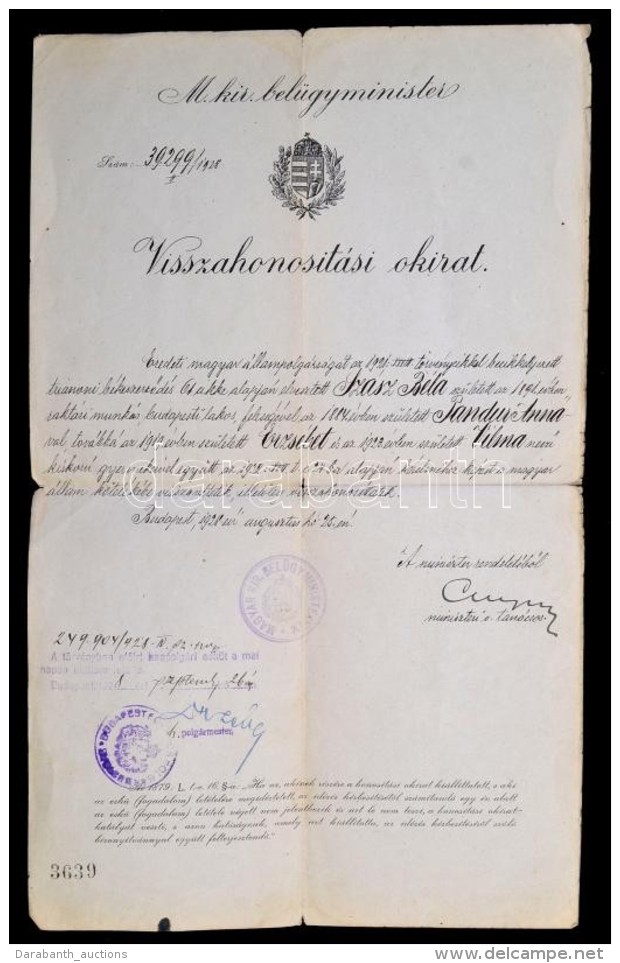 M. kir. belügyminister
Szám: 39299/1928
II
Visszahonositási okirat.
Eredeti magyar állampolgárságát az 1921. XXXIII. törvénycikkel becikkelyezett
trianoni békeszerződés 61. cikke alapján elvesztett Szász Béla született az 1891. évben
raktári munkás budapesti lakos, feleségével az 1884 évben született Pandur Anna
val, továbbá az 1917 évben született Erzsébet és az 1923 évben született Vilma nevü
kiskorú gyermekeivel együtt az alapján a magyar
állam kötelékébe visszavétetik, illetőleg visszahonosittatik.
Budapest, 1928 évi augusztus hó 25. én.
A miniszter rendeletéből
miniszteri o. tanácsos
MAGYAR KIR. BELÜGYMINISZTER
249.904/928-IV.
A törvényben előirt honpolgári esküt a mai
napon
Budapest, 8 szeptember 26
h. polgármester.
BUDAPEST
1879. L. t.-c. 16. §-a: "Ha az, akinek részére a honositási okirat kiállittatott, a
az eskü (fogadalom) letételére megidéztetett, az idézés kézbesitésétől számitandó egy év alatt
az eskü (fogadalom) letétele végett nem jelentkezik és azt le nem teszi, a honositási okirat
hatályát veszti, s azon hatóságnak, amely azt kiállitotta, az idézés kézbesitéséről szóló
bizonyitvánnyal együtt felterjesztendő."
3639
darabanth
Darabanth_auctions
www.delcampe.net